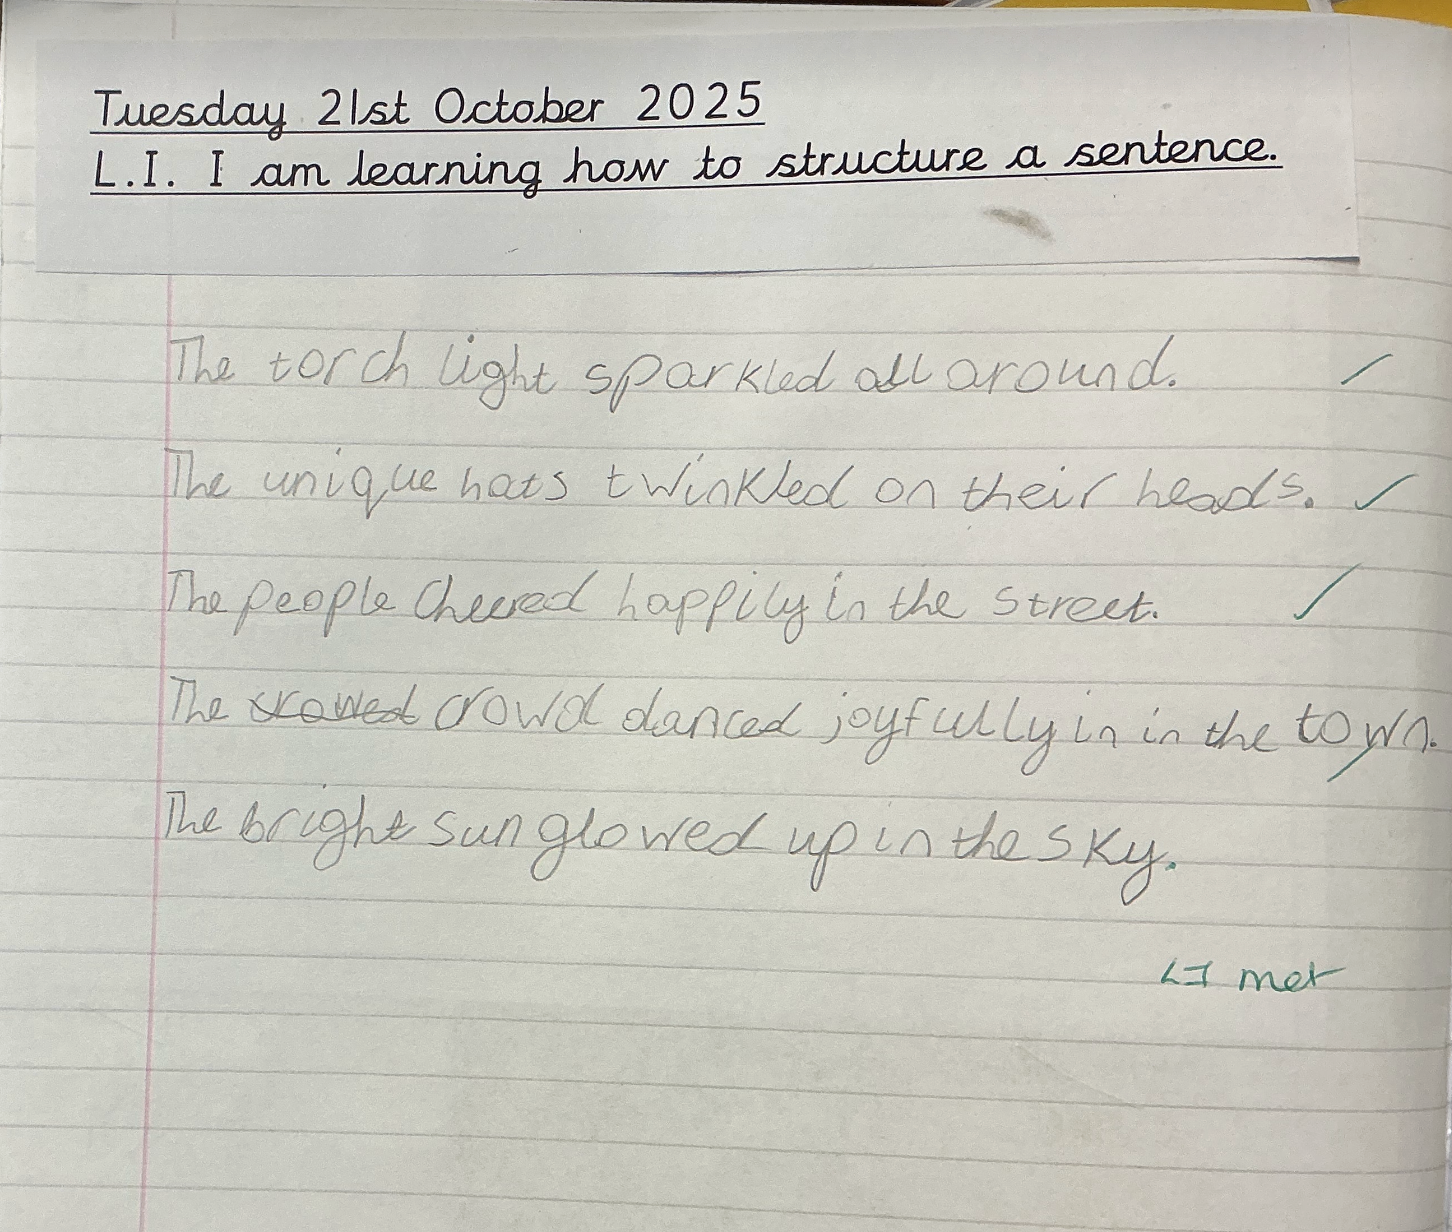 Tuesday 21st October 2025
L.I. I am learning how to structure a sentence.
The torch light sparkled all around.
The unique hats twinkled on their heads.
The people cheered happily in the street.
The crowd danced joyfully in in the town.
The bright sun glowed up in the sky.
LI met